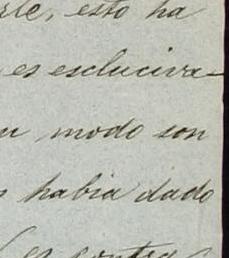 rte, esto ha
es escluciva-
modo son
habia dado
es contra